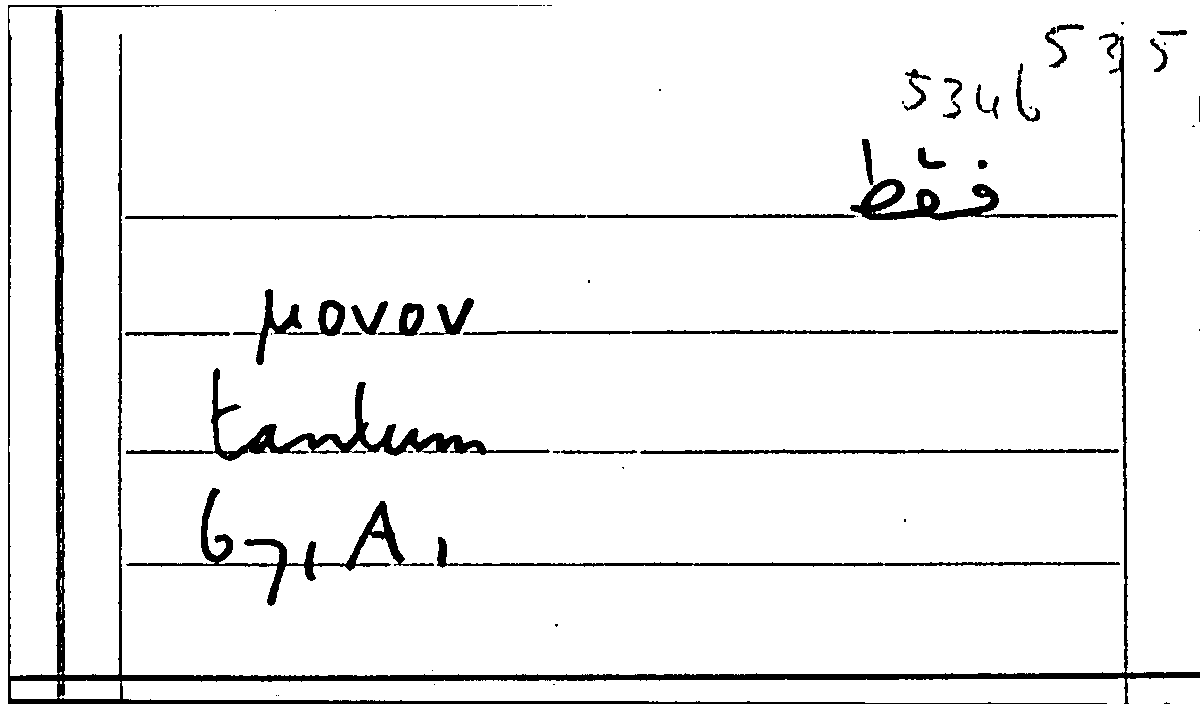 535
5346
فقط
μονον
tantum
67, A,